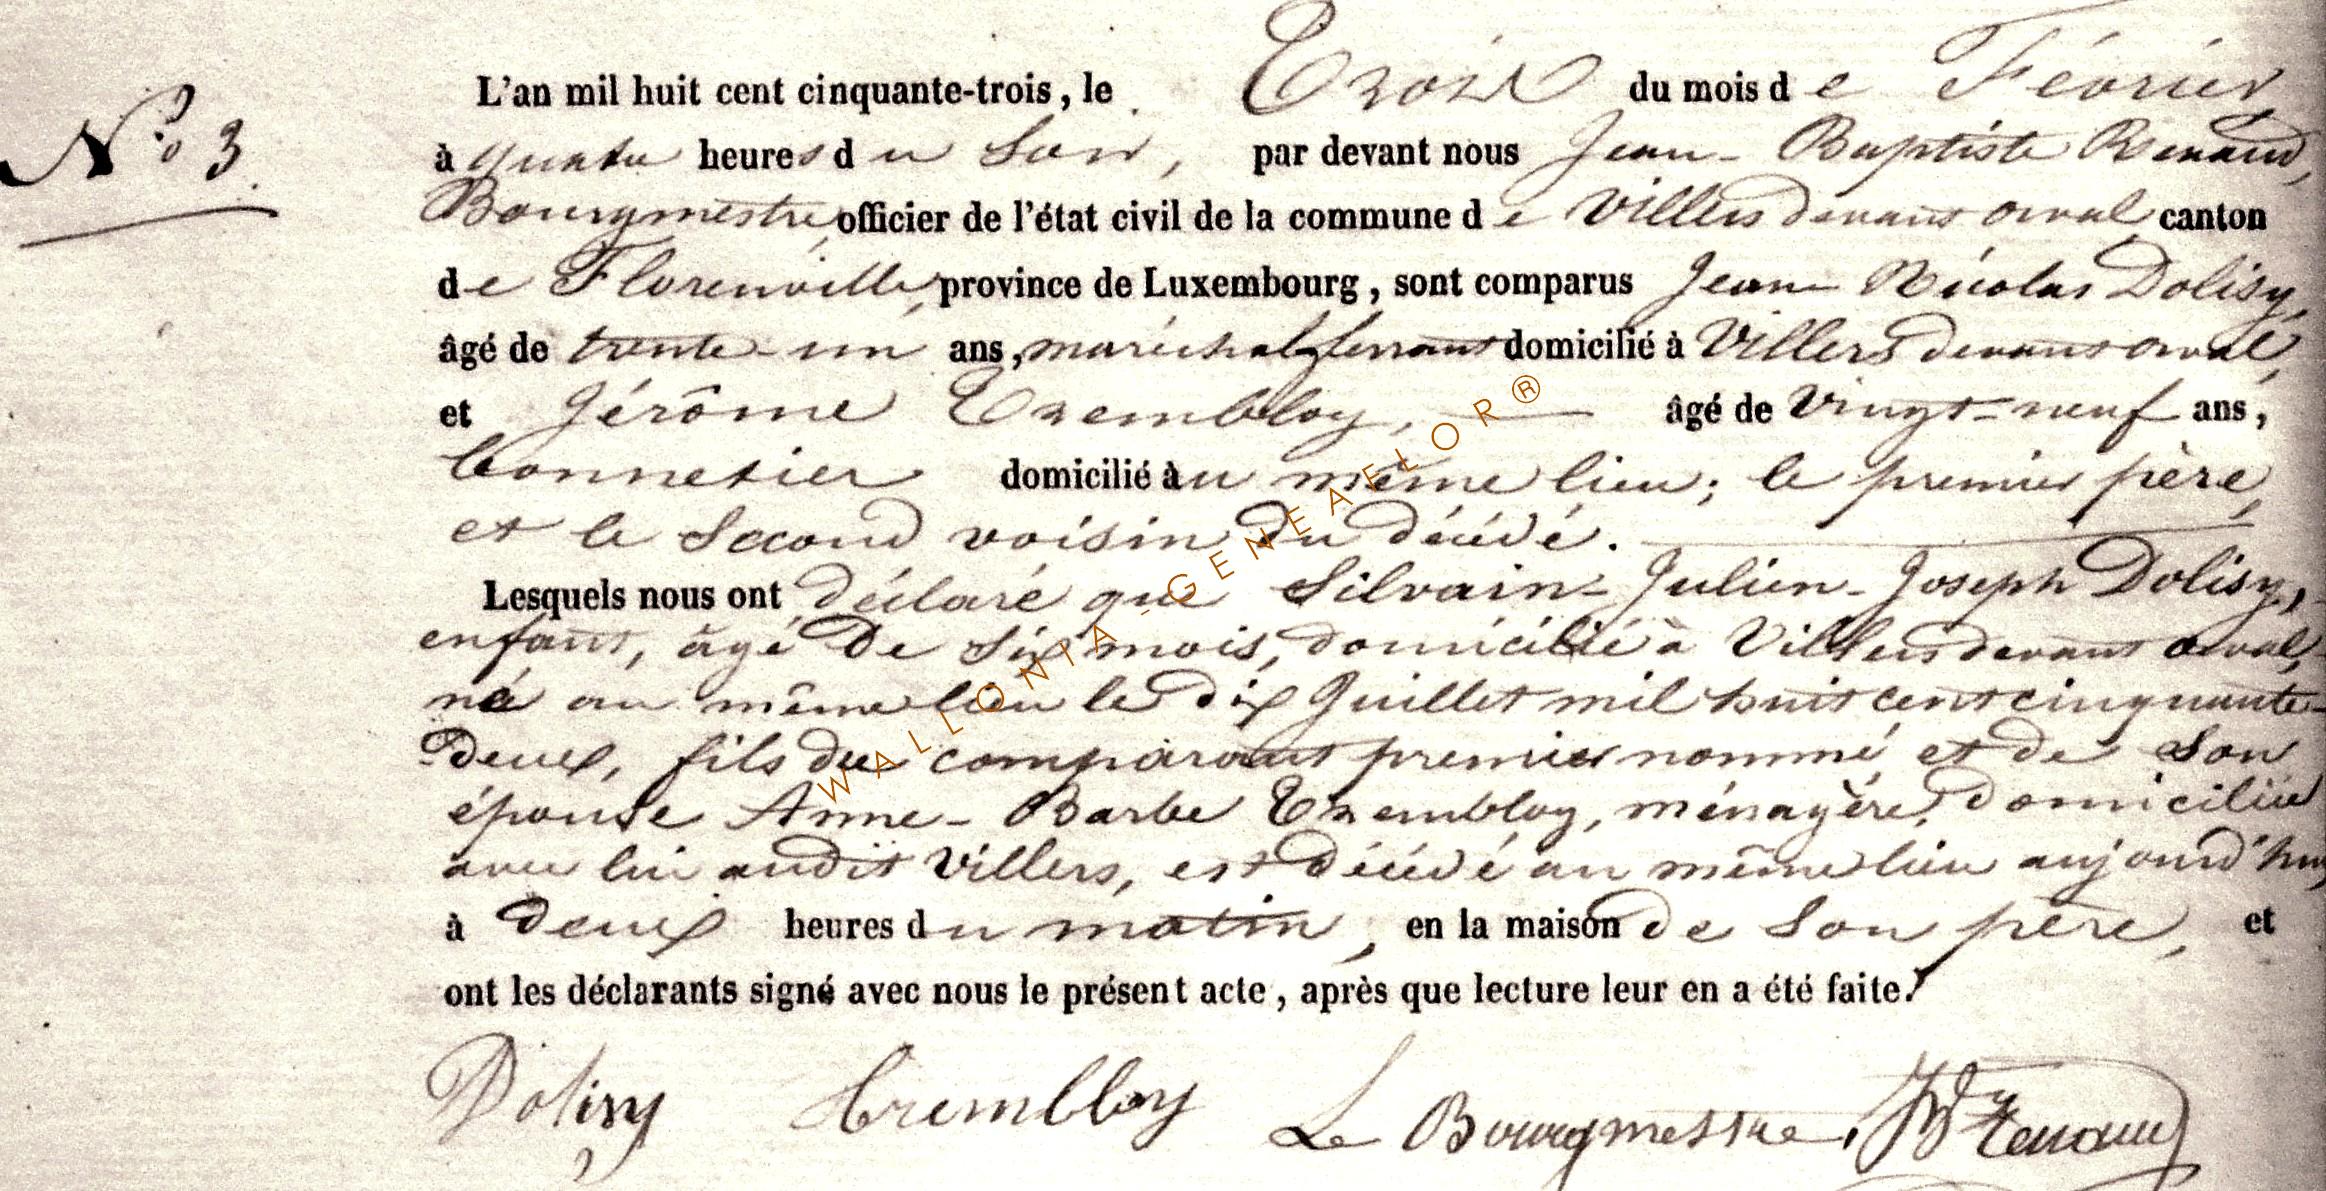 N° 3
L'an mil huit cent cinquante-trois, le Trois du mois de Février,
à quatre heures du Soir, par devant nous Jean-Baptiste Renaud,
Bourgmestre, officier de l'état civil de la commune de Villers devant orval canton
de Florenville, province de Luxembourg, sont comparus Jean Nicolas Dolisy,
âgé de trente-un ans, maréchal ferrant domicilié à Villers devant orval,
et Jérôme Trembloy, âgé de Vingt-neuf ans,
bonnetier domicilié au même lieu; le premier père,
et le Second voisin du décédé.
Lesquels nous ont déclaré que Silvain-Julien-Joseph Dolisy,
enfant, âgé de Six mois, domicilié à Villers devant orval,
né au même lieu le dix Juillet mil huit cent cinquante-
deux, fils du comparant premier nommé et de Son
épouse Anne-Barbe Trembloy, ménagère, domiciliée
avec lui audit Villers, est décédé au même lieu aujourd'huy
à deux heures du matin, en la maison de Son père, et
ont les déclarants signé avec nous le présent acte, après que lecture leur en a été faite.
Dolisy Trembloy Le Bourgmestre, JBte Renaud
WALLONIA-GENEAELOR®